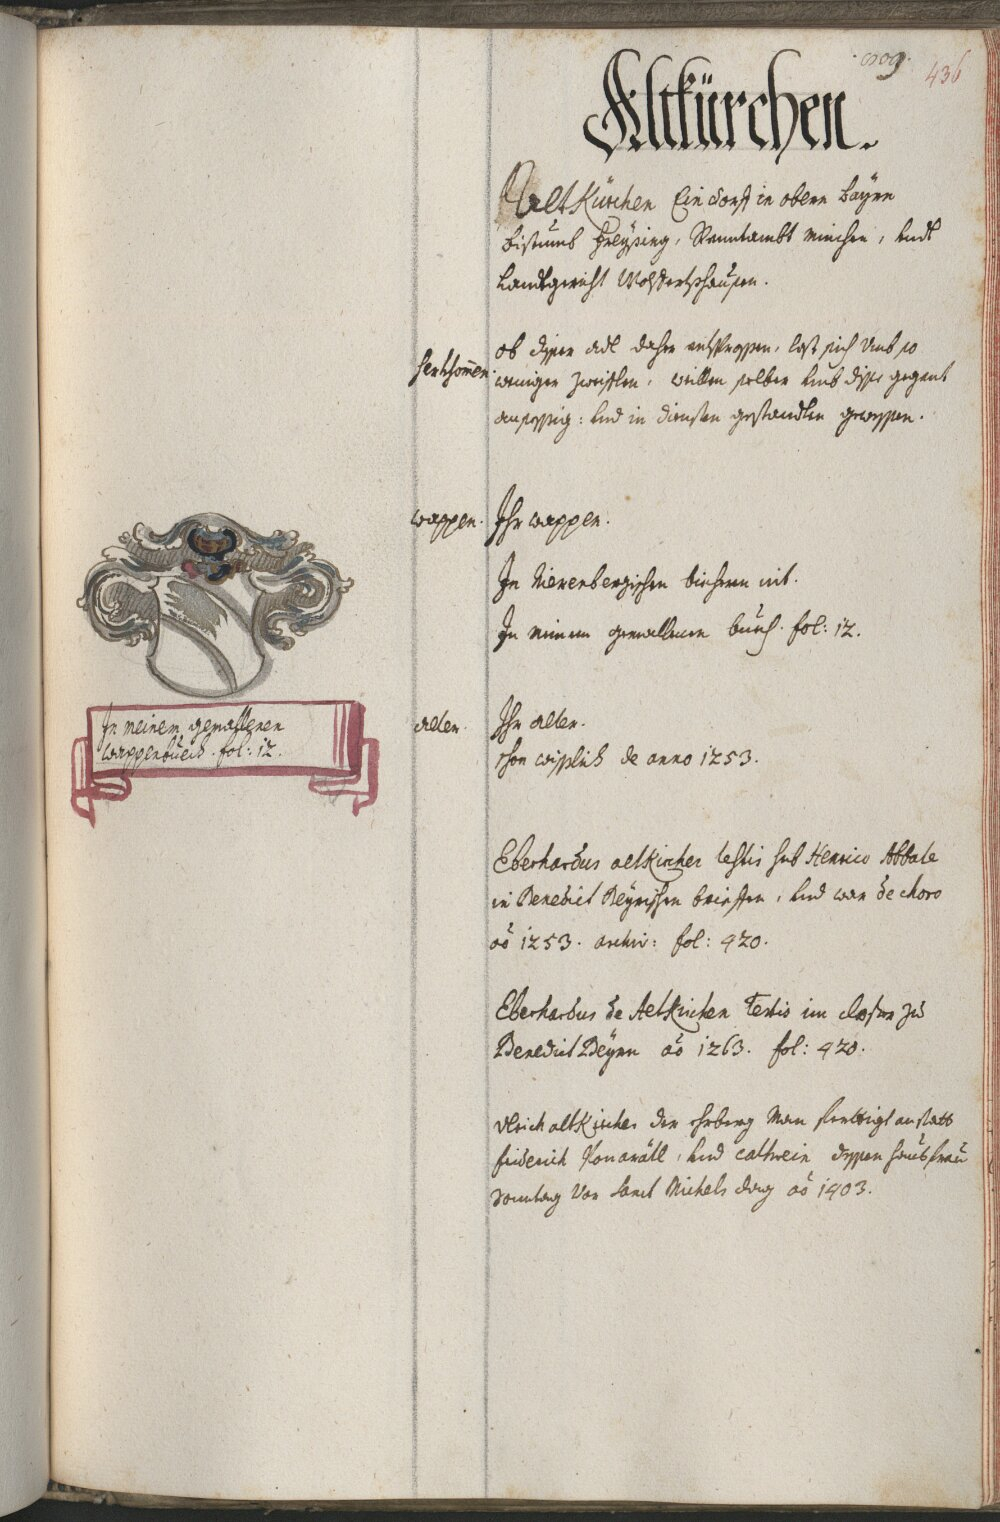 809.
436
Altkürchen.
Altkürchen Ein dorf in obern Bayrn
Bistumb Freysing, Renntambt Minchen, Undt
Landtgericht Wolfertshausen.
herkhomen
ob diser adl daher entsprossen, last sich Umb so
weniger zweiflen, weillen selber Umb dise gegent
ansessig: Und in diensten gestandten gewessen.
wappen. Ihr wappen.
In Nierenbergischen biechern nit.
In meinem gemallenen buech. fol: 12.
In meinem gemallenen
wappenbuech. fol: 12.
alter. Ihr alter.
schon wisslich de anno 1253.
Eberhardus altkircher testis sub Henrico Abbate
in Benedict Beyrischen brieffen, Und war de choro
ao 1253. archiv: fol: 420.
Eberhardus de Altkirchen Testis im closter zu
Benedict Beyrn ao 1263. fol: 420.
Ulrich altkircher der erberg Man anstatt
friderich, Und cathrein dessen hausfrau
Sontag Vor Sanct Michels dag ao 1403.